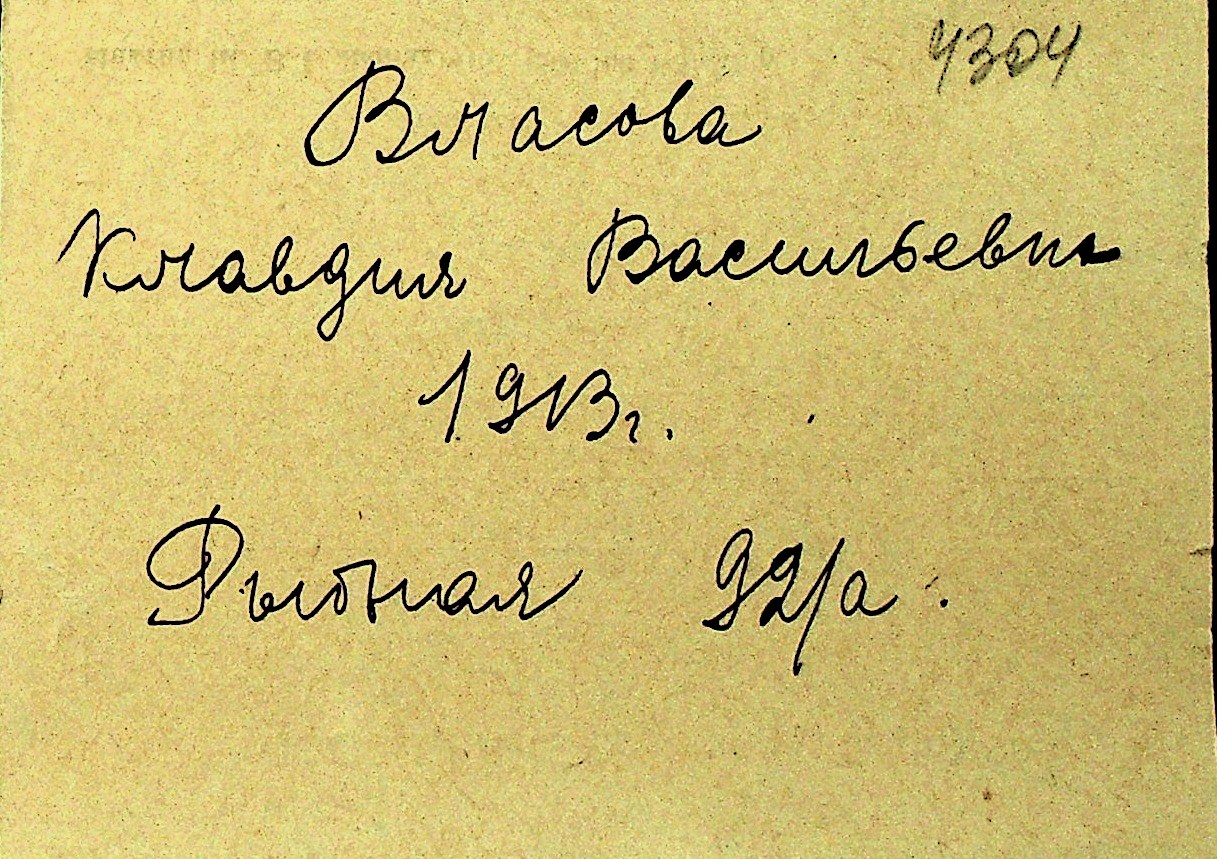 4304
Власова
Клавдия Васильевна
1913г.
Рыбная 92/а.